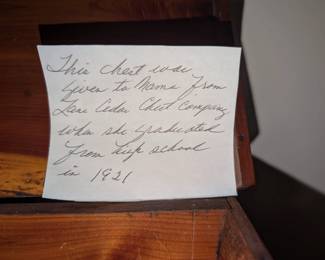 This chest was
given to Mama from
Lane Cedar Chest Company
when she graduated
from high school
in 1921